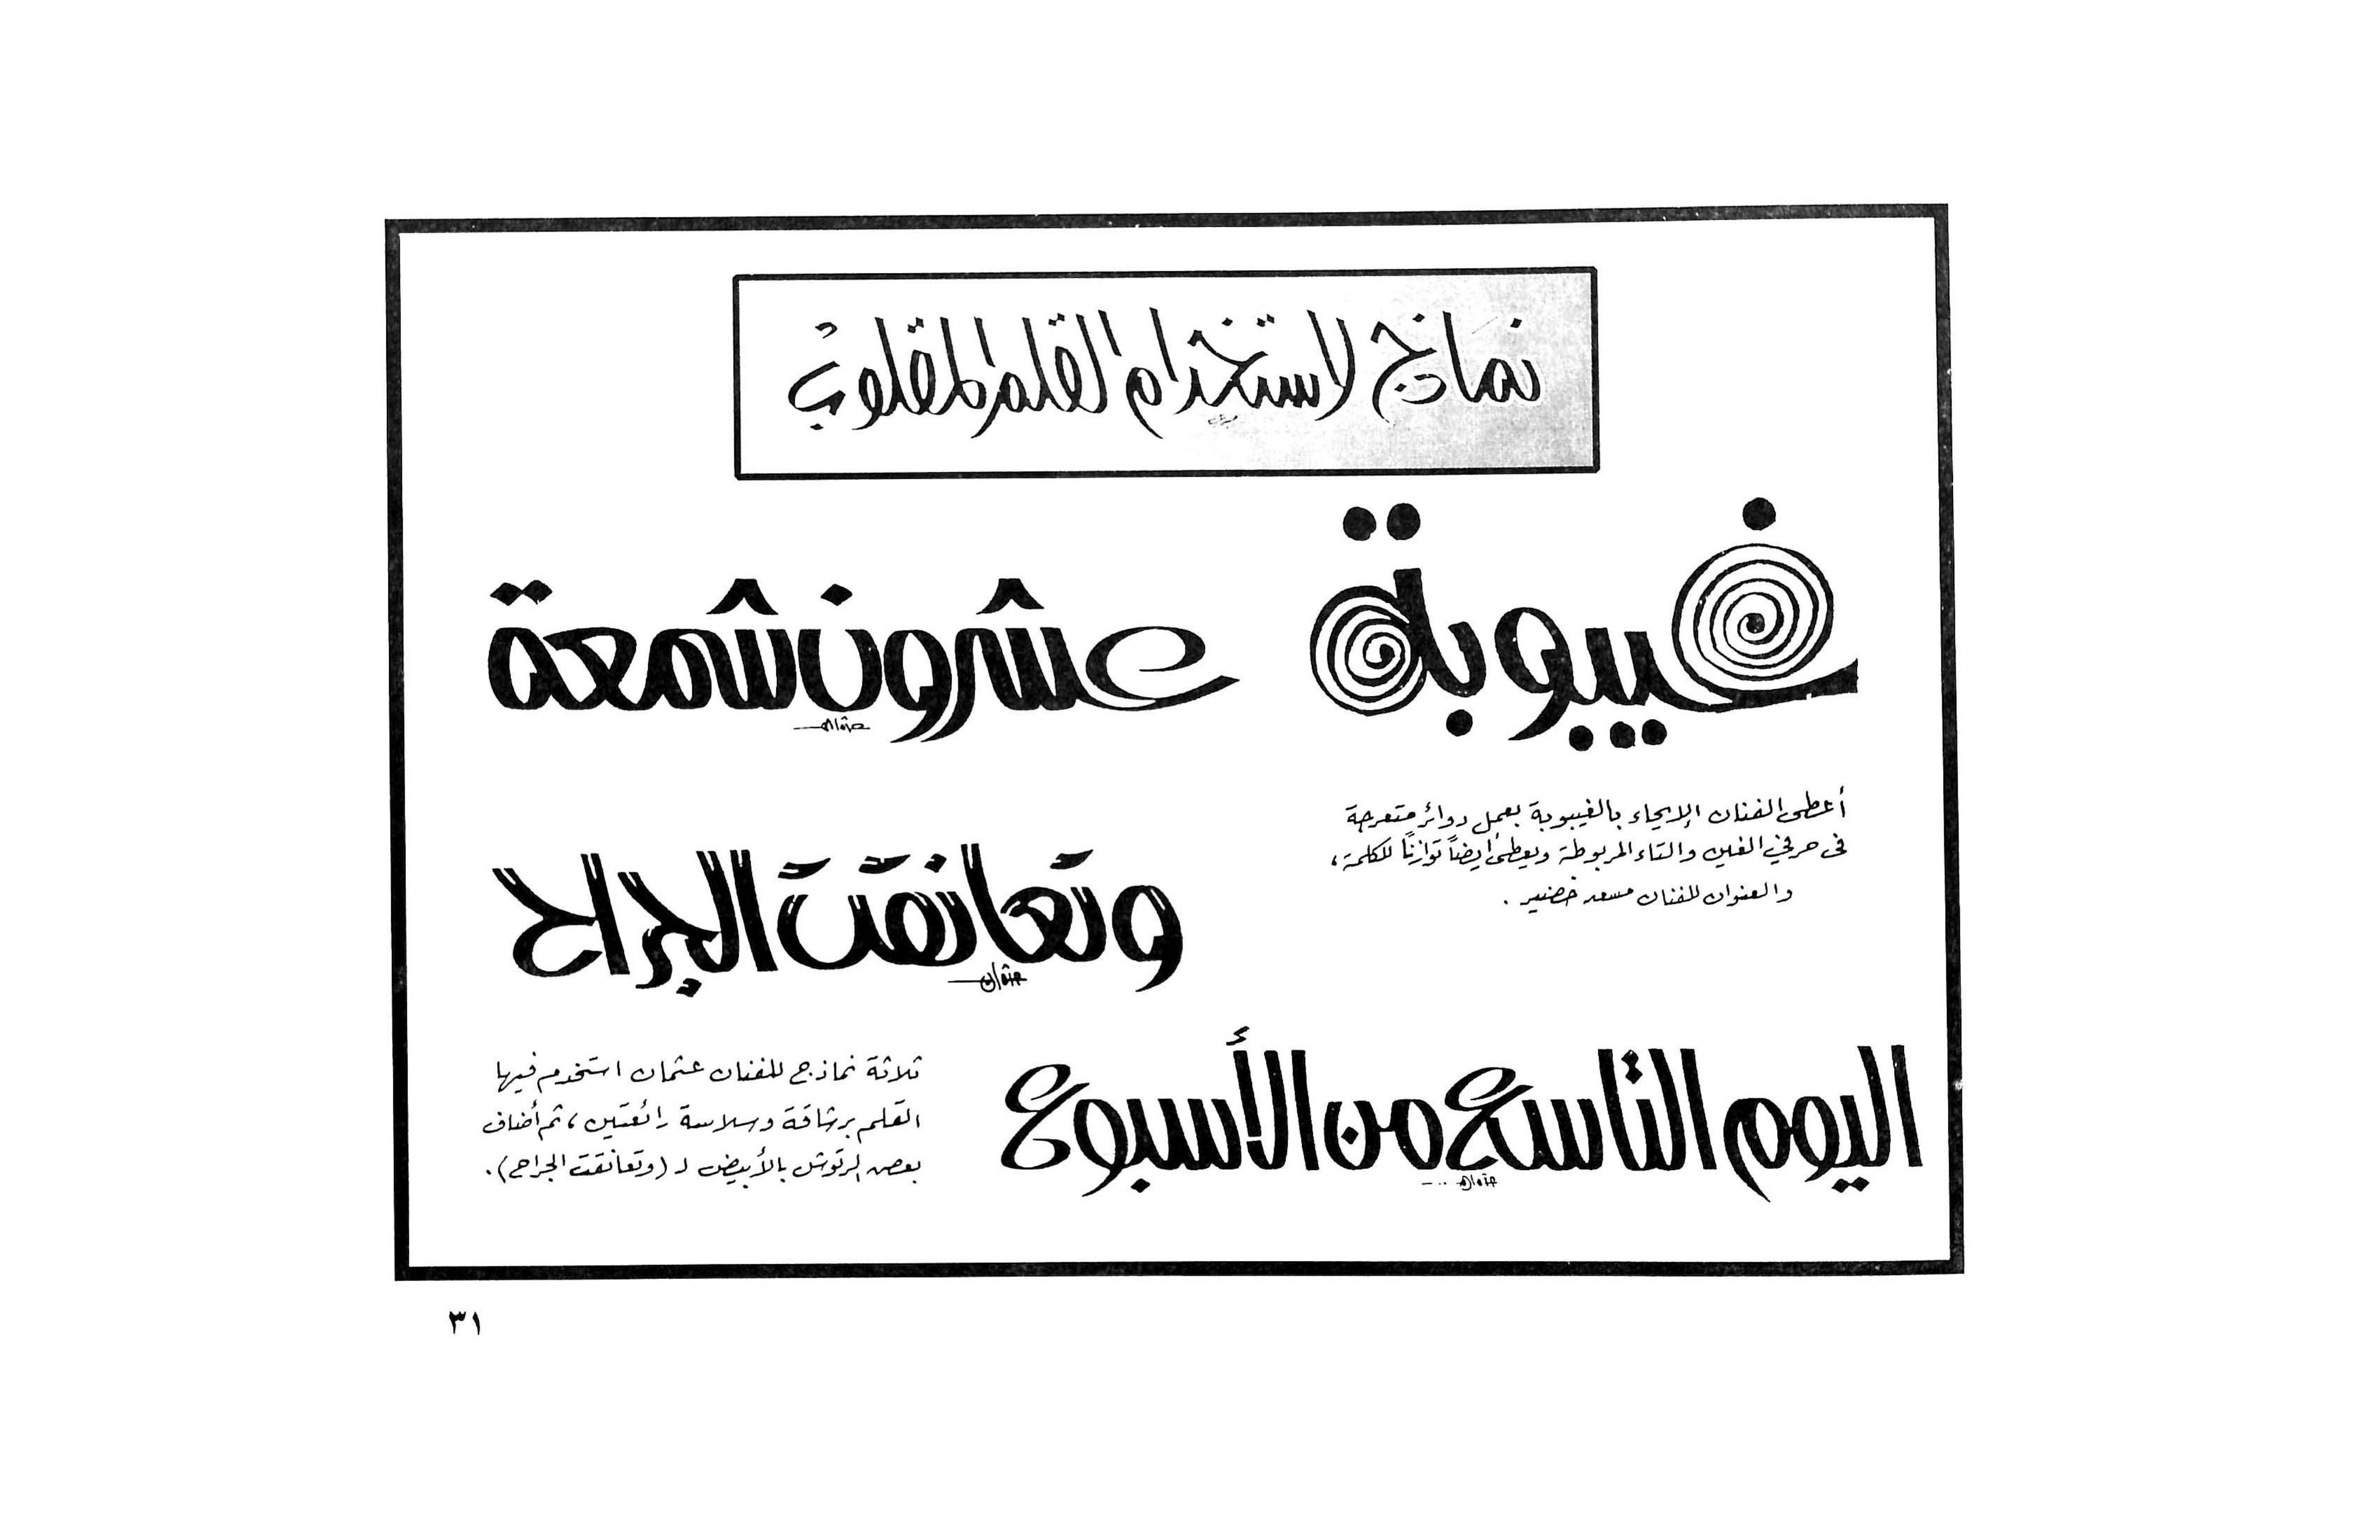 نماذج لاستخدام القلم المقلوب
غيبوبة
عشرون شمعة
عثمان
أعطى الفنان الإيحاء بالغيبوبة بعمل دوائر متعرجة
فى حرفي الغين والتاء المربوطة ويعطى أيضاً توازناً للكلمة،
والعنوان للفنان مسعد خضير .
وتعانقت الجراح
عثمان
اليوم التاسع من الأسبوع
عثمان
ثلاثة نماذج للفنان عثمان استخدم فيها
القلم برشاقة وسلاسة رائعتين، ثم أضاف
بعض الرتوش بالأبيض لـ (وتعانقت الجراح).
٣١